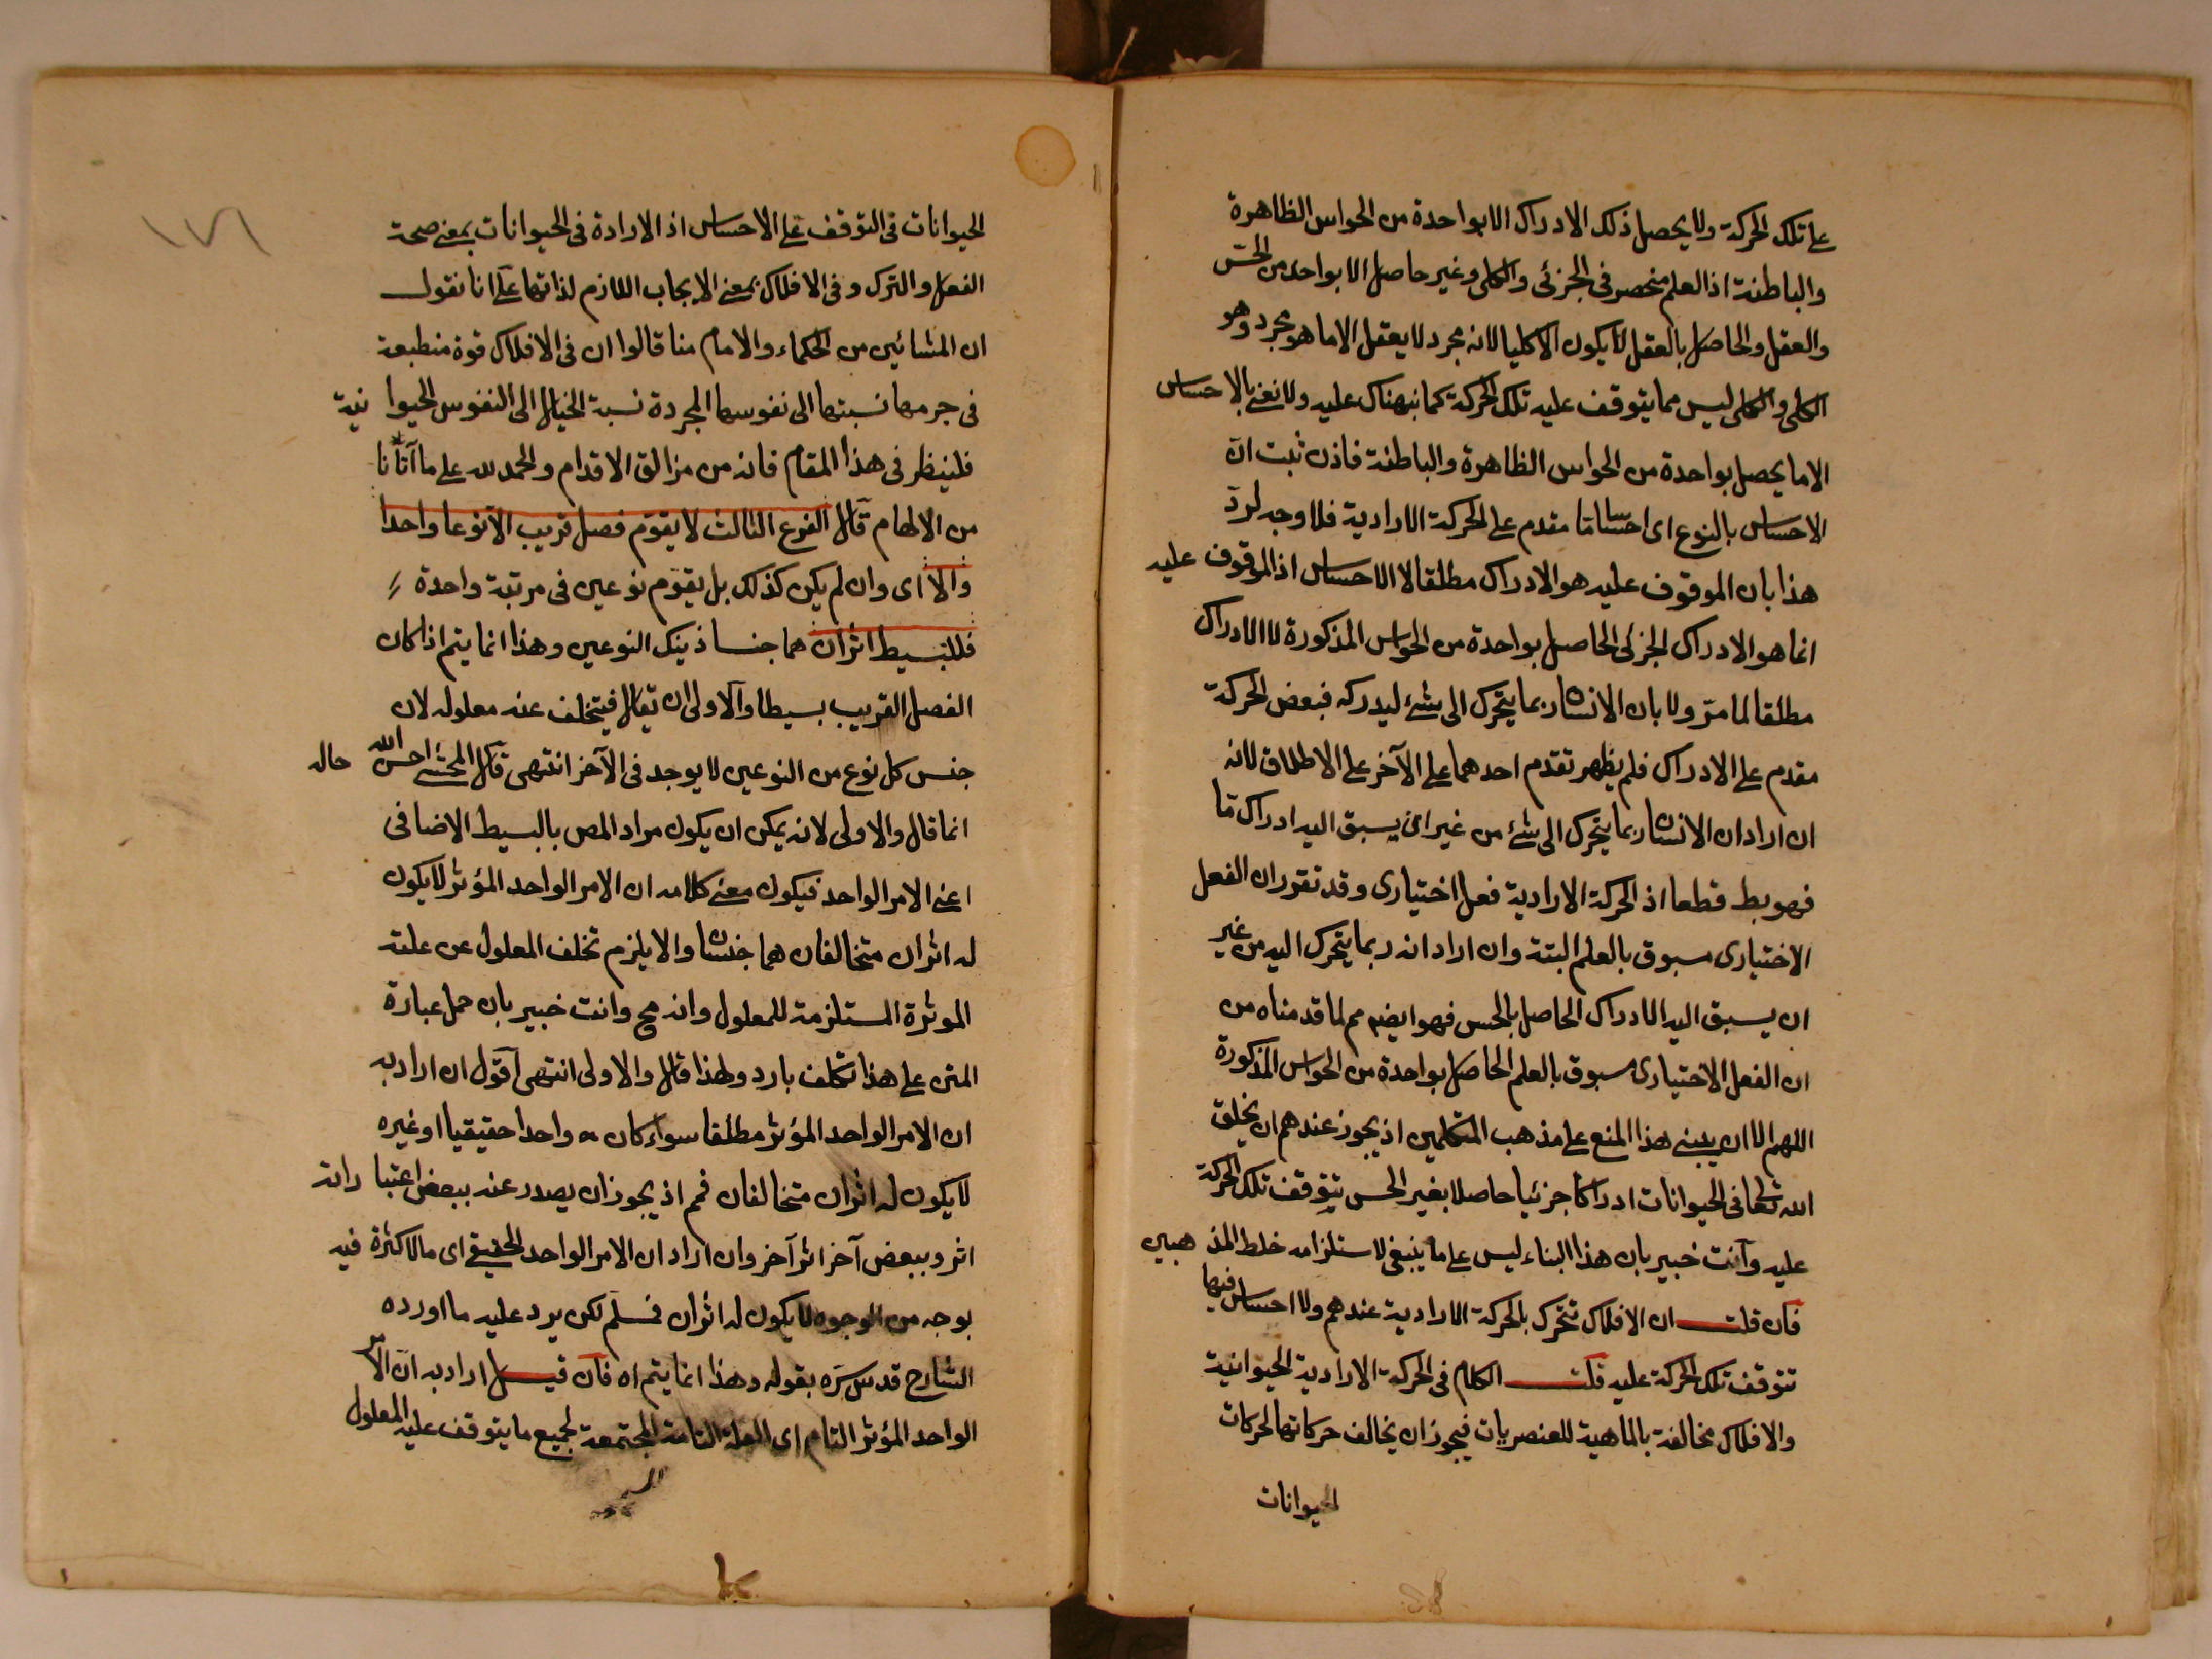 على تلك الحركة ولا يحصل ذلك الادراك الا بواحدة من الحواس الظاهرة
والباطنة اذ العلم منحصر فى الجزئى والكلى وغير حاصل الا بواحد من الحس
والعقل والحاصل بالعقل لا يكون الا كليا لانه مجرد لا يعقل الا ما هو مجرد وهو
الكلى والكلى ليس مما يتوقف عليه تلك الحركة كما نبهناك عليه ولا نعنى بالاحساس
الا ما يحصل بواحدة من الحواس الظاهرة والباطنة فاذن ثبت انّ
الاحساس بالنوع اى احساسا ما مقدم على الحركة الارادية فلا وجه لردّ
هذا بان الموقوف عليه هو الادراك مطلقا لا الاحساس اذ الموقوف عليه
انما هو الادراك الجزئى الحاصل بواحدة من الحواس المذكورة لا الادراك
مطلقا لما مرّ ولا بان الانسان ربما يتحرك الى شئ ليدركه فبعض الحركة
مقدم على الادراك فلم يظهر تقدم احدهما على الآخر على الاطلاق لانه
ان اراد ان الانسان ربما يتحرك الى شئ من غير ان يسبق اليه ادراك ما
فهو بط قطعا اذ الحركة الارادية فعل اختيارى وقد تقرر ان الفعل
الاختيارى مسبوق بالعلم البتة وان اراد انه ربما يتحرك اليه من غير
ان يسبق اليه الادراك الحاصل بالحس فهو ايضا مم لما قدمناه من
ان الفعل الاختيارى مسبوق بالعلم الحاصل بواحدة من الحواس المذكورة
اللهم الا ان يبنى هذا المنع على مذهب المتكلمين اذ يجوز عندهم ان يخلق
الله تعالى فى الحيوانات ادراكا جزئيا حاصلا بغير الحس يتوقف تلك الحركة
عليه وآنت خبير بان هذا البناء ليس على ما ينبغى لاستلزامه خلط المذهبين
فان قلت ان الافلاك تتحرك بالحركة الارادية عندهم ولا احساس فيها
تتوقف تلك الحركة عليه قلت الكلام فى الحركة الارادية الحيوانية
والافلاك مخالفة بالماهية للعنصريات فيجوز ان يخالف حركاتها لحركات
الحيوانات
١٧١
الحيوانات فى التوقف على الاحساس اذ الارادة فى الحيوانات بمعنى صحة
الفعل والترك وفى الافلاك بمعنى الايجاب اللازم لذاتها على انا نقول
ان المشائين من الحكماء والامام منا قالوا ان فى الافلاك قوة منطبعة
فى جرمها نسبتها الى نفوسها المجردة نسبة الخيال الى النفوس الحيوانية
فلينظر فى هذا المقام فانه من مزالق الاقدام والحمد لله على ما آتانا
من الالهام قال الفرع الثالث لا يقوم فصل قريب الا نوعا واحدا
والا اى وان لم يكن كذلك بل يقوم نوعين فى مرتبة واحدة
فللبسيط اثران هما جنسا ذينك النوعين وهذا انما يتم اذا كان
الفصل القريب بسيطا والاولى ان يقال فيتخلف عنه معلوله لان
جنس كل نوع من النوعين لا يوجد فى الآخر انتهى قال المحشى احسن الله حاله
انما قال والاولى لانه يمكن ان يكون مراد المص بالبسيط الاضافى
اعنى الامر الواحد فيكون معنى كلامه ان الامر الواحد المؤثر لا يكون
له اثران متخالفان هما جنسان والا يلزم تخلف المعلول عن علته
الموثرة المستلزمة للمعلول وانه مح وانت خبير بان حمل عبارة
المتن على هذا تكلف بارد ولهذا قال والاولى انتهى آقول ان اراد به
ان الامر الواحد المؤثر مطلقا سواء كان واحدا حقيقيا او غيره
لا يكون له اثران متخالفان فمم اذ يجوز ان يصدر عنه ببعض اعتباراته
اثر وببعض آخر اثر آخر وان اراد ان الامر الواحد الحقيقى اى ما لا كثرة فيه
بوجه من الوجوه لا يكون له اثران فمسلم لكن يرد عليه ما اورده
الشارح قدس سره بقوله وهذا انما يتم اه فان قيل اراد به انّ الامر
الواحد المؤثر التام اى العلة التامة المجتمعة لجميع ما يتوقف عليه المعلول